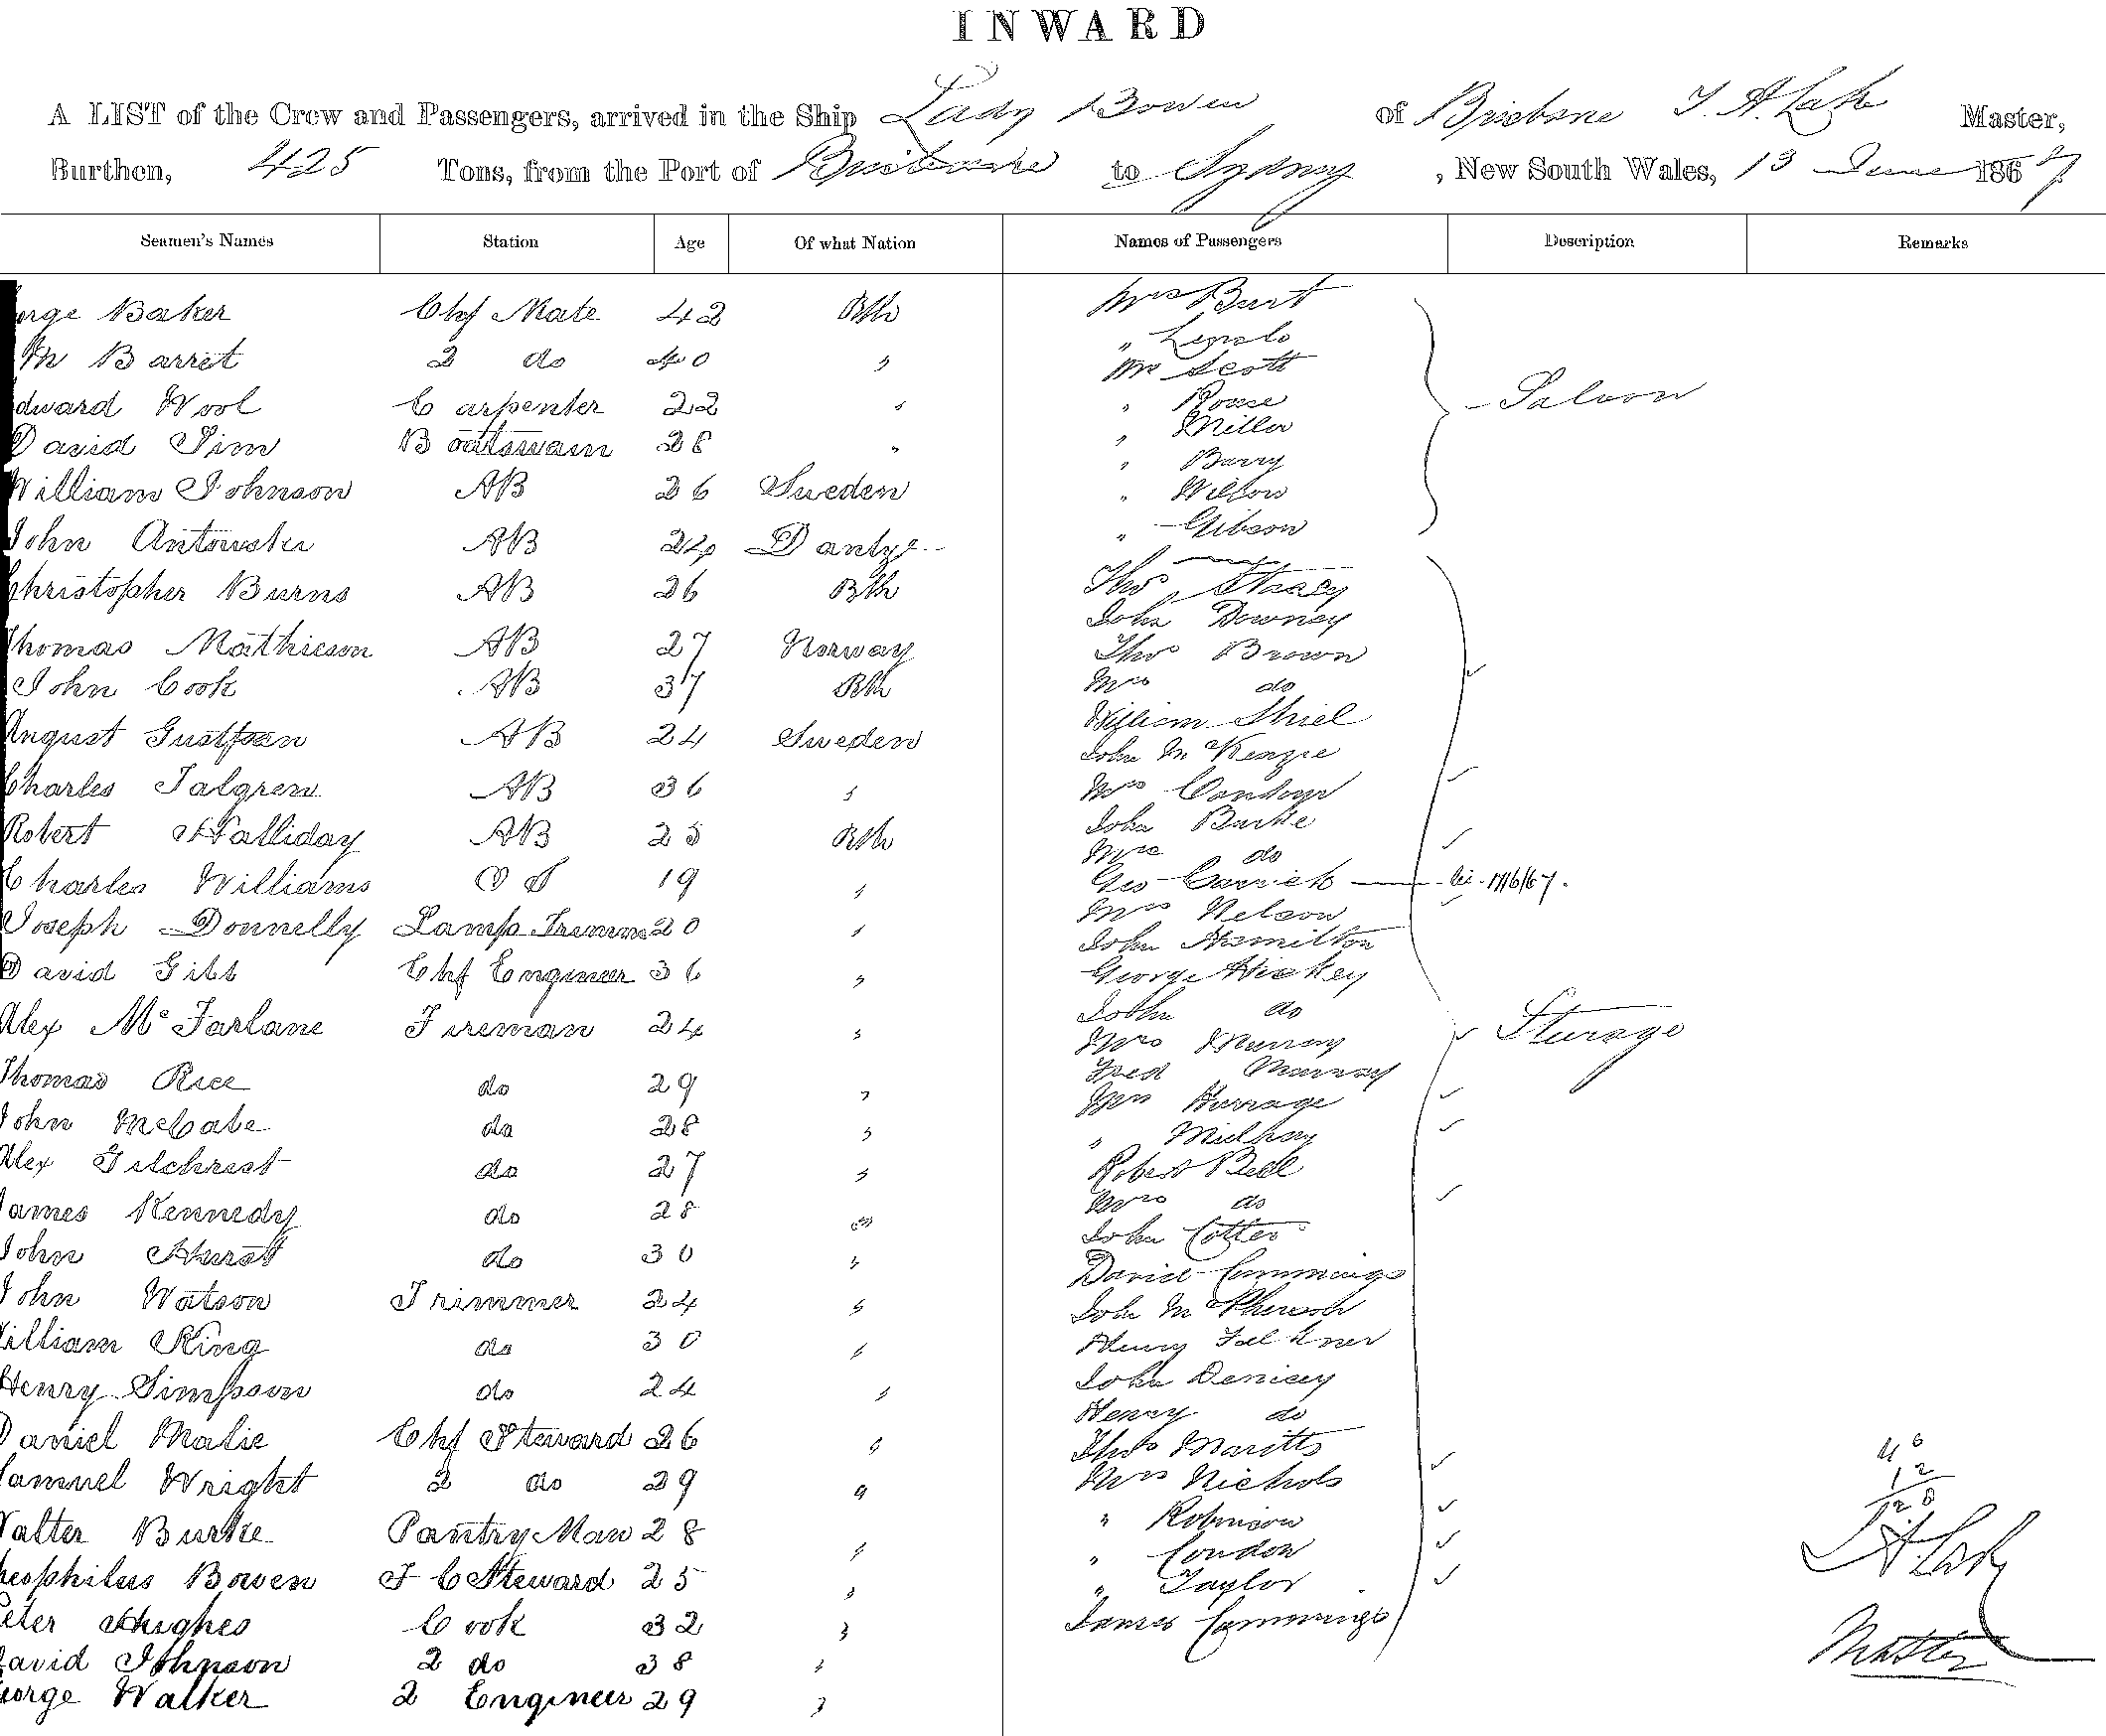 INWARD
A LIST of the Crew and Passengers, arrived in the Ship Lady Bowen of Brisbane T. A. Lake Master,
Burthen, 425 Tons, from the Port of Brisbane to Sydney, New South Wales, 13 June 1867
Seamen's Names Station Age Of what Nation Names of Passengers Description Remarks
orge Baker Chf Mate 42 Bth Mrs Burt
Wm Barret 2 do 40 " "
Mr Scott
dward Wool Carpenter 22 " " Rouse Saloon
David Sim Boatswain 28 " " Miller
" Barry
William Johnson AB 26 Sweden " Wilson
John AB 24 " Gibson
Christopher Burns AB 26 Bth Thos Stacey
John Downey
Thomas Mathieson AB 27 Norway Thos Brown
John Cook AB 37 Bth Mrs do
August AB 24 Sweden William Shiel
John McKenzie
Charles Talgren AB 36 " Mrs
Robert Halliday AB 25 Bth John Burke
Mrs do
Charles Williams OS 19 " Geo Carrick 17/6/67.
Joseph Donnelly Lamp Trimmer 20 " Mrs Nelson
John Hamilton
David Gibb Chf Engineer 36 " George Hickey
John do
Alex McFarlane Fireman 24 " Mrs Murray Sturage
Fred Murray
Thomas Rice do 29 " Mrs Hurrage
John McCabe do 28 " "
Alex Gilchrest do 27 " Robert Bell
James Kennedy do 28 " Mrs do
John Hurst do 30 " John Cotter
David Cummings
John Watson Trimmer 24 " John
William King do 30 " Henry Falkner
Henry Simpson do 24 " John
Henry do
Daniel Malie Chf Steward 26 " Thos
Samuel Wright 2 do 29 " Mrs Nichols
Walter Burke Pantry Man 28 " " Robinson
" Condon
heophilus Bowen F C Steward 25 " " Taylor
eter Hughes Cook 32 " James Cummings
avid Johnson 2 do 38 "
eorge Walker 2 Engineer 29 "
T A Lake
Master